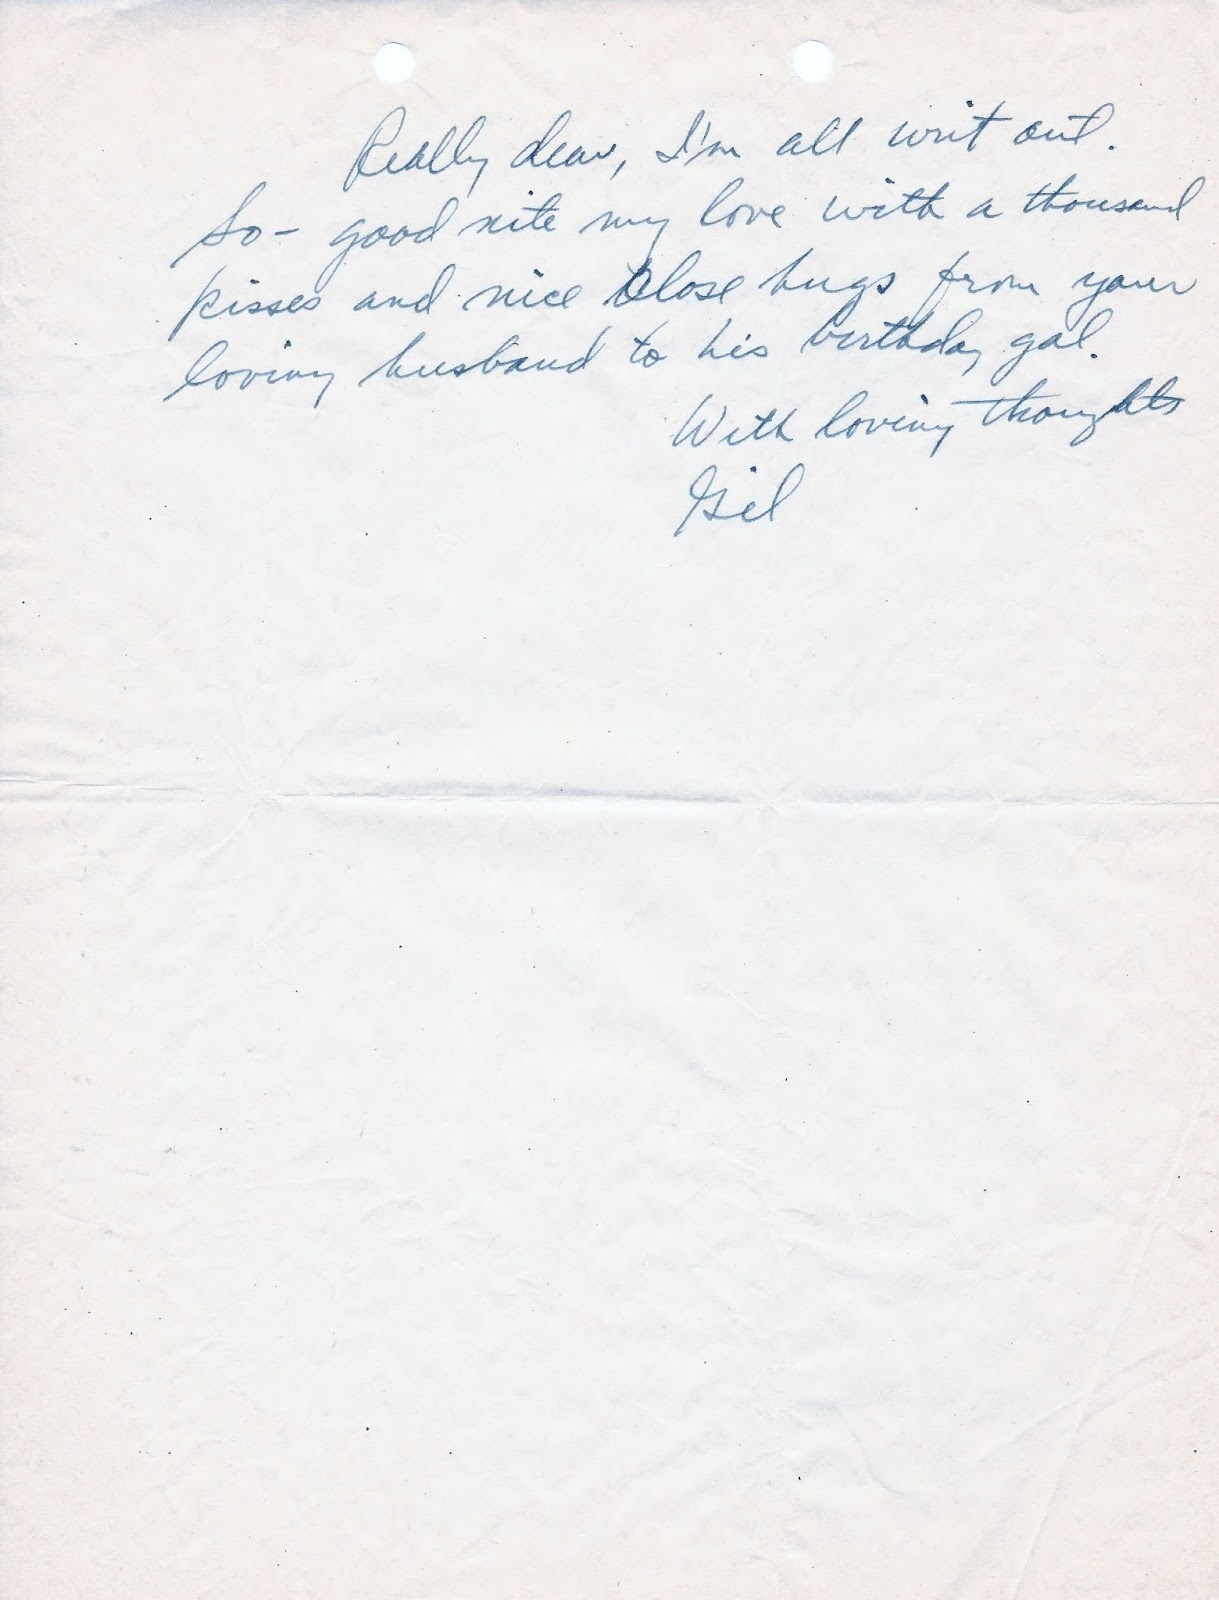 Really dear, I'm all writ out.
So- good nite my love with a thousand
kisses and nice close hugs from your
loving husband to his birthday gal.
With loving thoughts
Gil